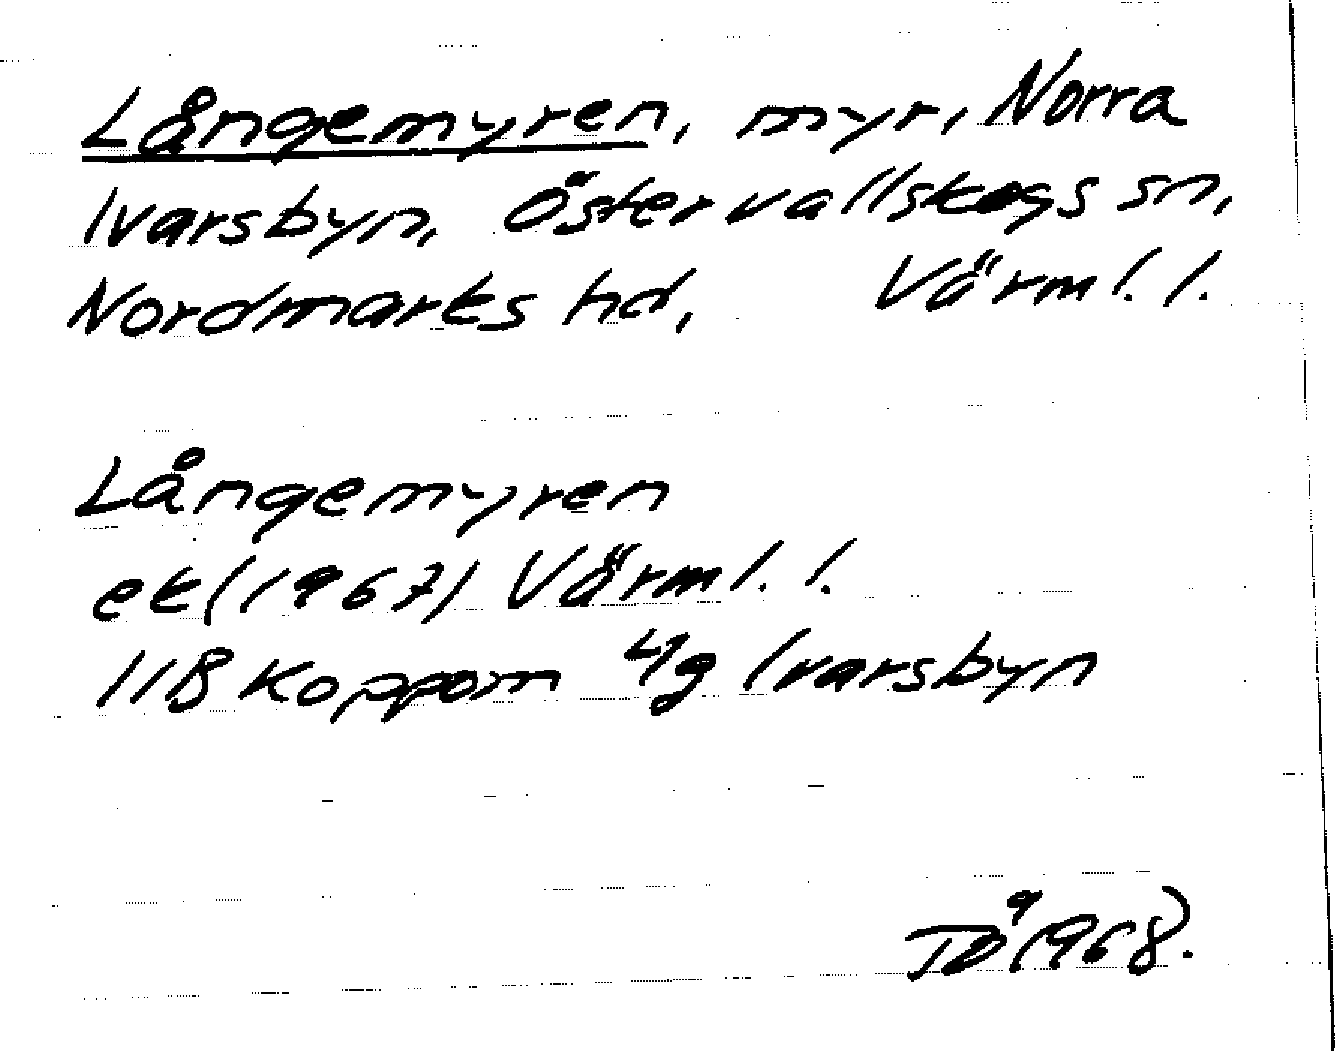 Långemyren, myr, Norra
Ivarsbyn, Östervallskogs sn,
Nordmarks hd, Värml. l.
Långemyren
ek (1967) Värml. l.
11B Koppom 4g Ivarsbyn
(1968).